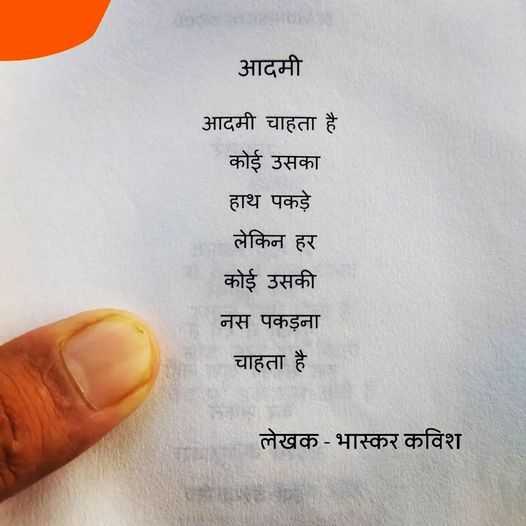 आदमी
आदमी चाहता है
कोई उसका
हाथ पकड़े
लेकिन हर
कोई उसकी
नस पकड़ना
चाहता है
लेखक - भास्कर कविश